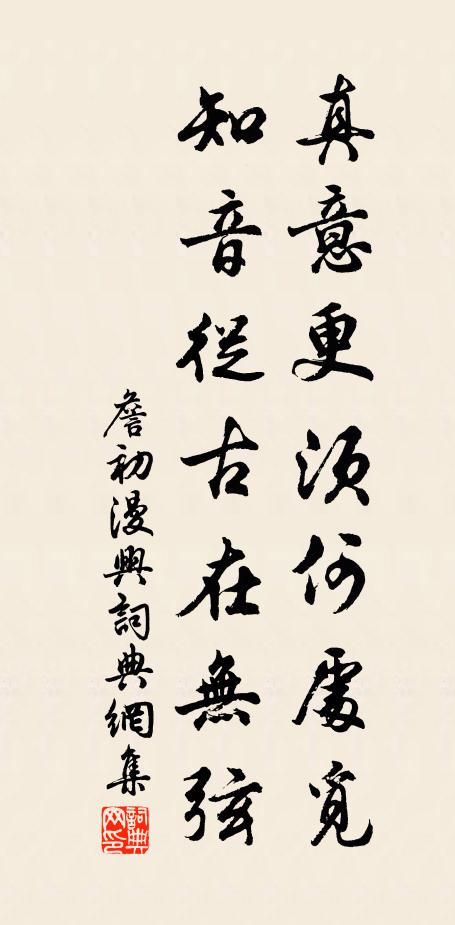 真意更須何處覓
知音從古在無弦
詹初漫興詞典網集
詞典网印